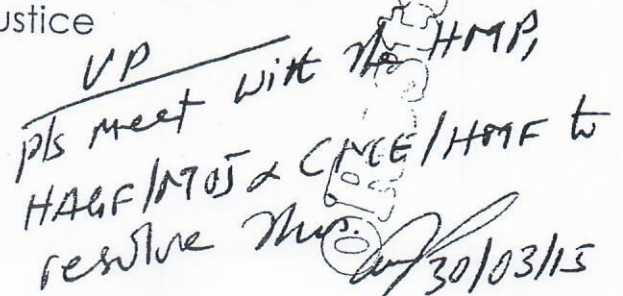 ustice
VP
pls meet with the HMP,
HAGF/MOJ & CMCE/HMF to
resolve this.
30/03/15